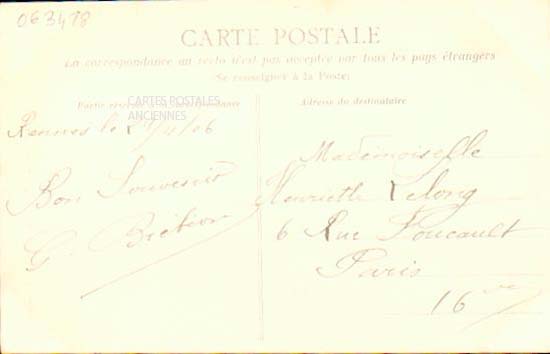 063478
CARTE POSTALE
La correspondance au recto n'est pas acceptée par tous les pays étrangers
Se renseigner à la Poste:
Partie réservée à la correspondance
Adresse du destinataire
CARTES POSTALES
ANCIENNES
Rennes le 21/4/06
Bon Souvenir
G.
Mademoiselle
Henriette Lelong
6 Rue Foucault
Paris
16